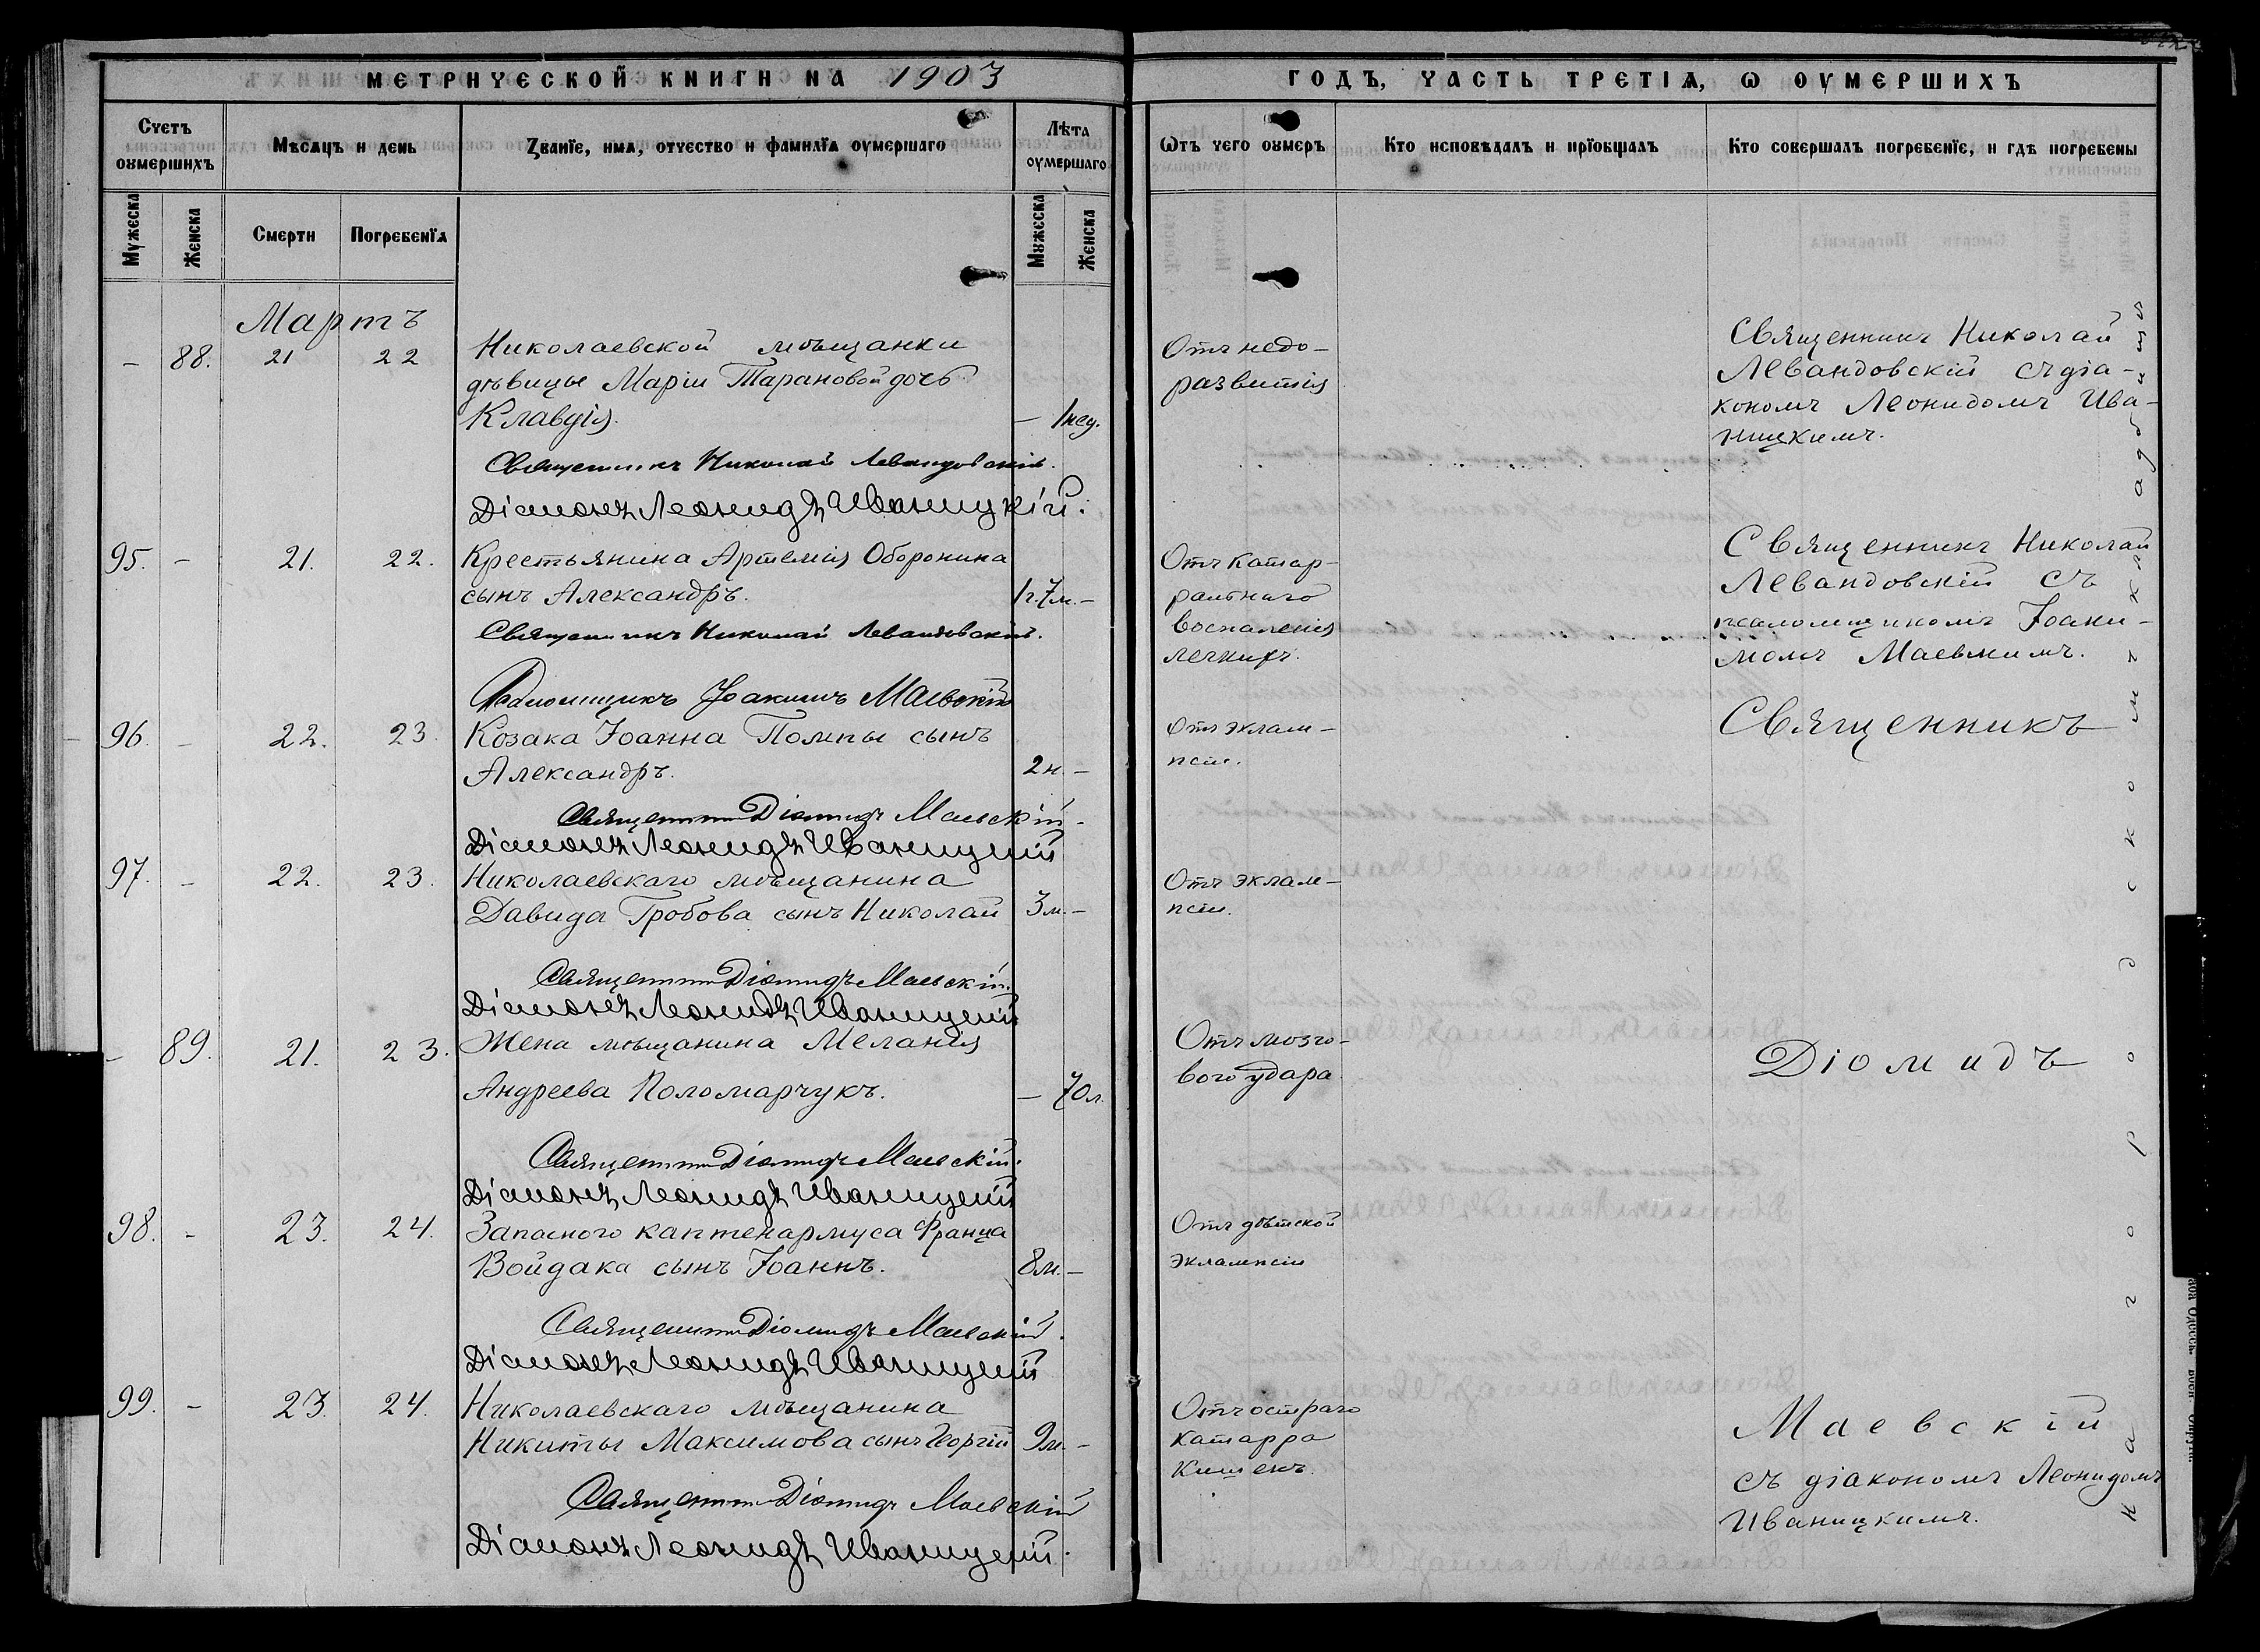 МЕТРИЧЕСКОЙ КНИГИ НА 1903
ГОДЪ, ЧАСТЬ ТРЕТІѦ, Ѡ ОУМЕРШИХЪ
Счетъ оумершихъ
Мѣсѧцъ и день
Званїе, имѧ, отчество и фамилїѧ оумершаго
Лѣта оумершаго
Ѿтъ чего оумеръ
Кто исповѣдалъ и прїобщалъ
Кто совершалъ погребенїе, и гдѣ погребены
Мужеска
Женска
Смерти
Погребенїѧ
Мужеска
Женска
Мартъ
– 88. 21 22 Николаевской мѣщанки
дѣвицы Маріи Тарановой дочь
Клавдія. – 1 нед.
Отъ недо-
развитія
Священникъ Николай
Левандовскій съ діа-
кономъ Леонидомъ Ива-
ницкимъ.
Священникъ Николай Левандовскій.
Діаконъ Леонидъ Иваницкій.
95. – 21. 22. Крестьянина Артемія Оборонина
сынъ Александръ. 1г. 7м. –
Отъ катар-
ральнаго
воспаленія
легкихъ.
Священникъ Николай
Левандовскій съ
псаломщикомъ Іоаки-
момъ Маевскимъ.
Священникъ Николай Левандовскій.
Псаломщикъ Іоакимъ Маевскій
96. – 22. 23. Козака Іоанна Помпы сынъ
Александръ. 2 н. –
Отъ эклам-
псіи.
Священникъ
Священникъ Діомидъ Маевскій
Діаконъ Леонидъ Иваницкій
97. – 22. 23. Николаевскаго мѣщанина
Давида Гробова сынъ Николай 3 м. –
Отъ эклам-
псіи.
Священникъ Діомидъ Маевскій.
Діаконъ Леонидъ Иваницкій
– 89. 21. 23. Жена мѣщанина Меланія
Андреева Поломарчукъ. – 70 л.
Отъ мозго-
вого удара
Діомидъ
Священникъ Діомидъ Маевскій.
Діаконъ Леонидъ Иваницкій
98. – 23. 24. Запасного каптенармуса Франца
Войдака сынъ Іоаннъ. 8 м. –
Отъ дѣтской
эклампсіи
Священникъ Діомидъ Маевскій.
Діаконъ Леонидъ Иваницкій
99. – 23. 24. Николаевскаго мѣщанина
Никиты Максимова сынъ Георгій 9 м. –
Отъ остраго
катарра
кишекъ.
Маевскій
съ діакономъ Леонидомъ
Иваницкимъ.
Священникъ Діомидъ Маевскій
Діаконъ Леонидъ Иваницкій.
на городскомъ кладбищѣ